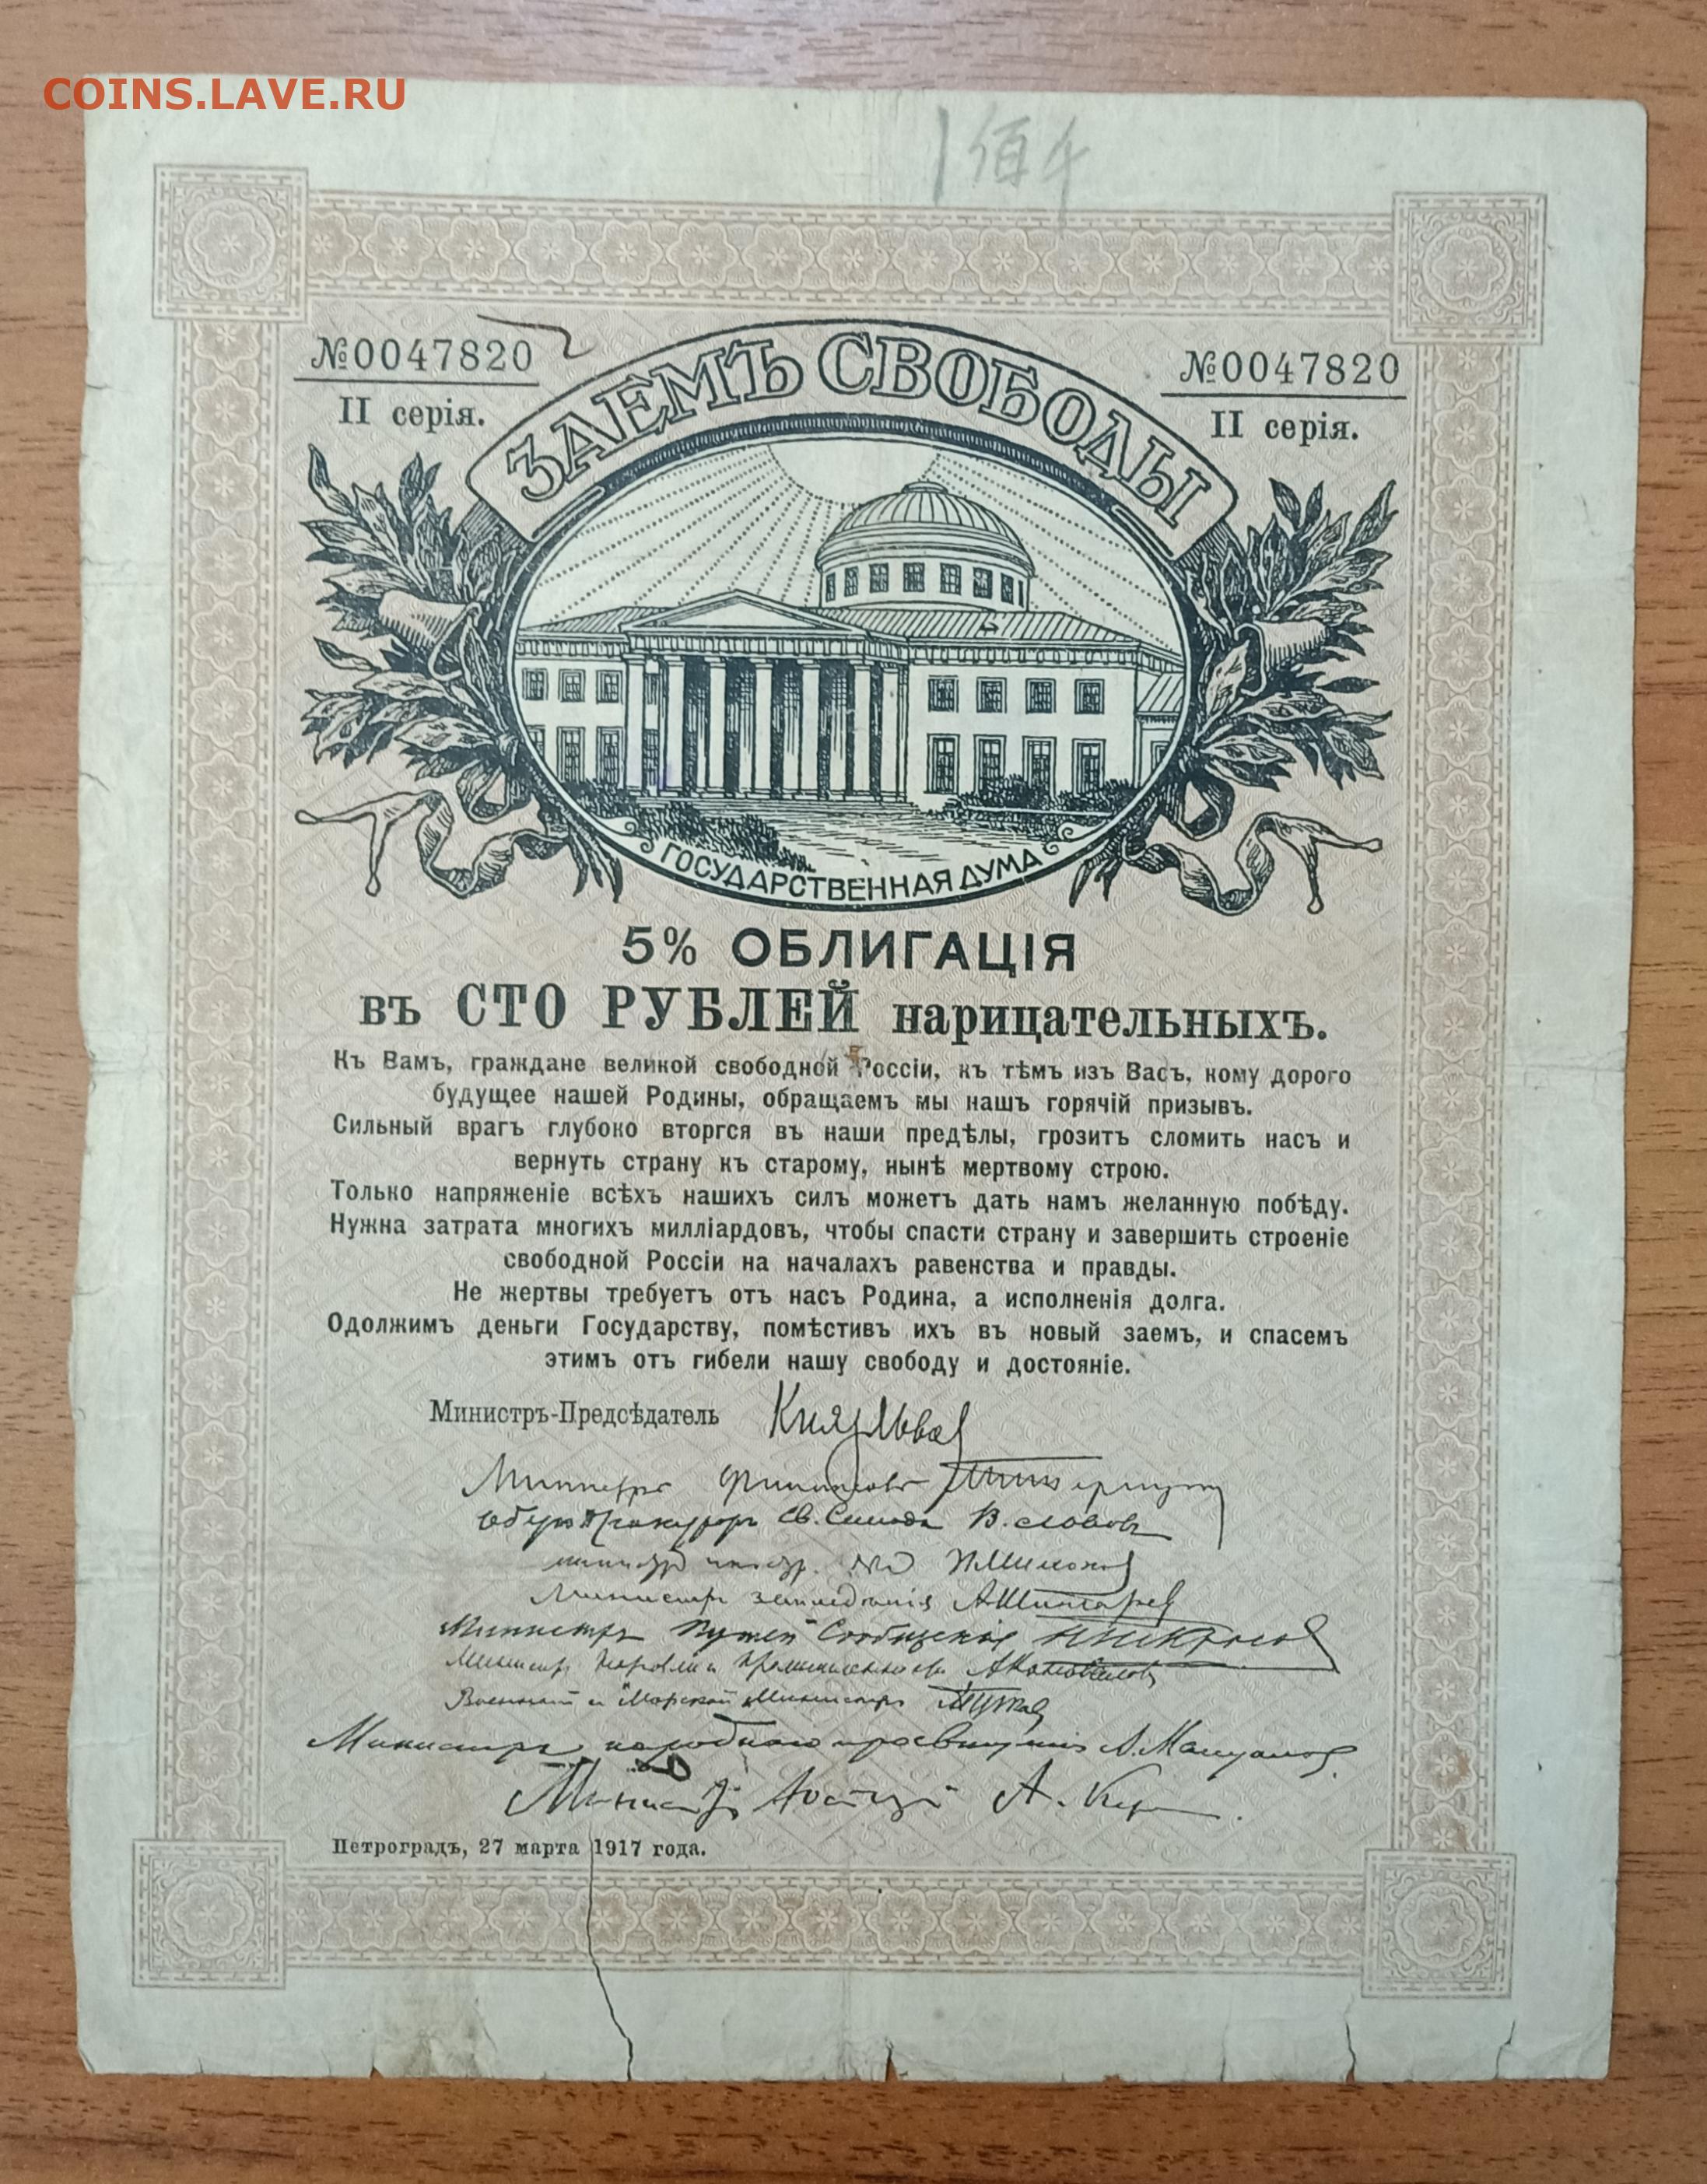 COINS.LAVE.RU
1佰
№0047820
II серія.
№0047820
II серія.
ЗАЕМЪ СВОБОДЫ
ГОСУДАРСТВЕННАЯ ДУМА
5% ОБЛИГАЦІЯ
въ СТО РУБЛЕЙ нарицательныхъ.
Къ Вамъ, граждане великой свободной Россіи, къ тѣмъ изъ Васъ, кому дорого
будущее нашей Родины, обращаемъ мы нашъ горячій призывъ.
Сильный врагъ глубоко вторгся въ наши предѣлы, грозитъ сломить насъ и
вернуть страну къ старому, нынѣ мертвому строю.
Только напряженіе всѣхъ нашихъ силъ можетъ дать намъ желанную побѣду.
Нужна затрата многихъ милліардовъ, чтобы спасти страну и завершить строеніе
свободной Россіи на началахъ равенства и правды.
Не жертвы требуетъ отъ насъ Родина, а исполненія долга.
Одолжимъ деньги Государству, помѣстивъ ихъ въ новый заемъ, и спасемъ
этимъ отъ гибели нашу свободу и достояніе.
Министръ-Предсѣдатель Князь Львов
Министръ финансовъ
Оберъ Прокуроръ Св. Синода В. Львовъ
Министръ иностр. П. Милюков
Министръ земледѣлія А. Шингарев
Министръ Путей Сообщенія Н. Некрасов
Министр Торговли и Промышленности А. Коновалов
Военный и Морской Министръ А. Гучков
Министръ народнаго просвѣщенія А. Мануилов
Министръ Юстиціи А. Кер
Петроградъ, 27 марта 1917 года.